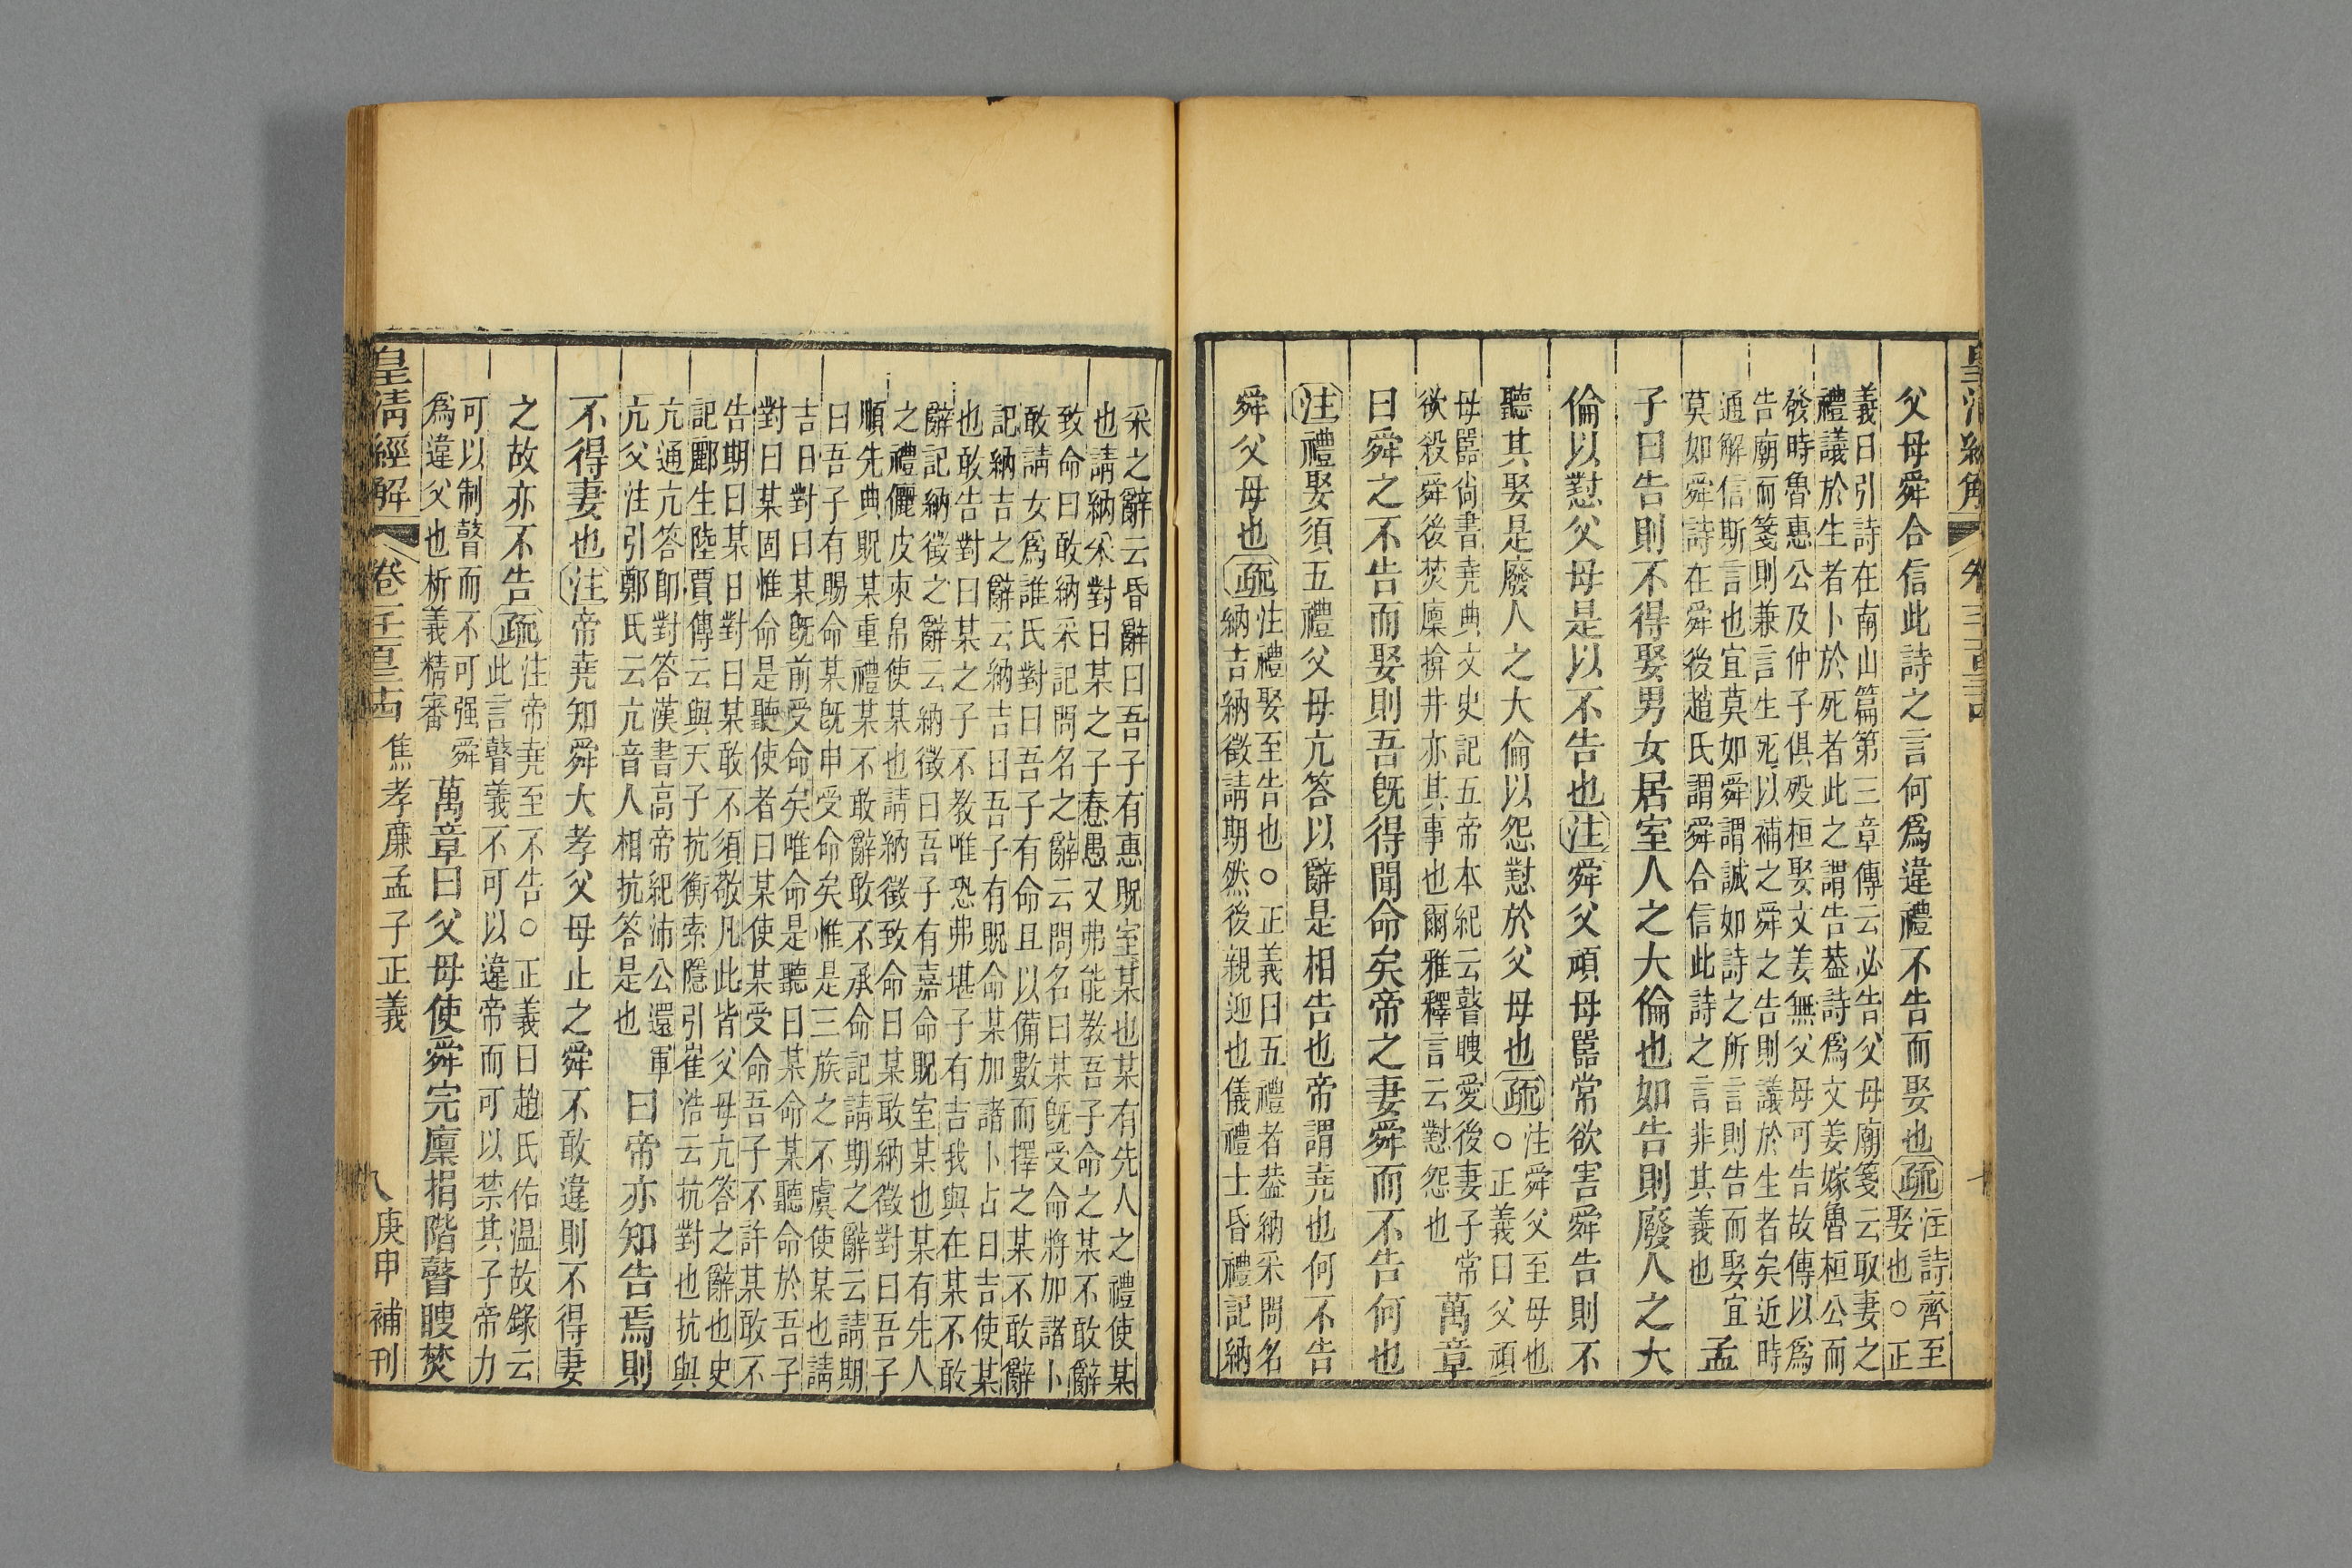 父母舜合信此詩之言何爲違禮不告而娶也疏
注詩齊至
娶也○正
義曰引詩在南山篇第三章傳云必告父母廟箋云取妻之
禮議於生者卜於死者此之謂告葢詩爲文姜嫁魯桓公而
發時魯惠公及仲子俱殁桓娶文姜無父母可告故傳以爲
告廟而箋則兼言生死以補之舜之告則議於生者矣近時
通解信斯言也宜莫如舜謂誠如詩之所言則告而娶宜
莫如舜詩在舜後趙氏謂舜合信此詩之言非其義也
孟
子曰告則不得娶男女居室人之大倫也如告則廢人之大
倫以懟父母是以不告也注舜父頑母嚚常欲害舜告則不
聽其娶是廢人之大倫以怨懟於父母也疏
注舜父至母也
○正義曰父頑
母嚚尚書堯典文史記五帝本紀云瞽瞍愛後妻子常
欲殺舜後焚廩揜井亦其事也爾雅釋言云懟怨也
萬章
曰舜之不告而娶則吾旣得聞命矣帝之妻舜而不告何也
注禮娶須五禮父母亢答以辭是相告也帝謂堯也何不告
舜父母也疏
注禮娶至告也○正義曰五禮者葢納采問名
納吉納徵請期然後親迎也儀禮士昏禮記納
采之辭云昏辭曰吾子有惠貺室某也某有先人之禮使某
也請納采對曰某之子惷愚又弗能教吾子命之某不敢辭
致命曰敢納采記問名之辭云問名曰某旣受命將加諸卜
敢請女爲誰氏對曰吾子有命且以備數而擇之某不敢辭
記納吉之辭云納吉曰吾子有貺命某加諸卜占曰吉使某
也敢告對曰某之子不教唯恐弗堪子有吉我與在某不敢
辭記納徵之辭云納徵曰吾子有嘉命貺室某也某有先人
之禮儷皮束帛使某也請納徵致命曰某敢納徵對曰吾子
順先典貺某重禮某不敢辭敢不承命記請期之辭云請期
曰吾子有賜命某旣申受命矣惟是三族之不虞使某也請
吉日對曰某旣前受命矣唯命是聽曰某命某聽命於吾子
對曰某固惟命是聽使者曰某使某受命吾子不許某敢不
告期曰某日對曰某敢不須敬凡此皆父母亢答之辭也史
記酈生陸賈傳云與天子抗衡索隱引崔浩云抗對也抗與
亢通亢答卽對答漢書高帝紀沛公還軍
亢父注引鄭氏云亢音人相抗答是也
曰帝亦知告焉則
不得妻也注帝堯知舜大孝父母止之舜不敢違則不得妻
之故亦不告疏
注帝堯至不告○正義曰趙氏佑温故錄云
此言瞽義不可以違帝而可以禁其子帝力
可以制瞽而不可强舜
爲違父也析義精審
萬章曰父母使舜完廩捐階瞽瞍焚
皇清經解 卷一千一百三十四 焦孝廉孟子正義 八 庚申補刊